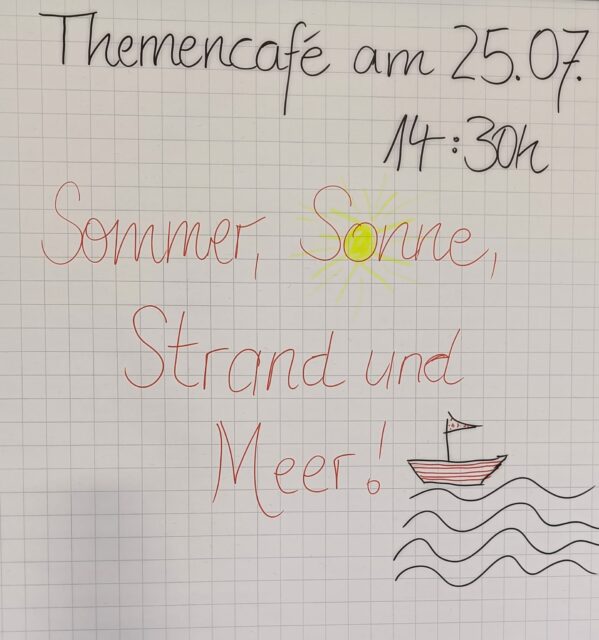 Themencafé am 25.07.
14:30h
Sommer, Sonne,
Strand und
Meer!